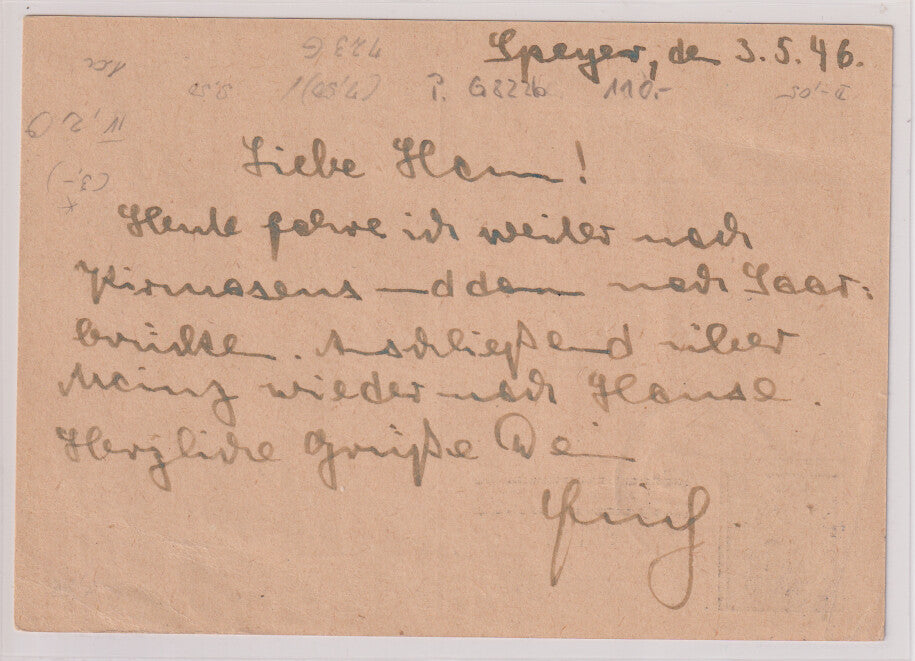 Speyer, den 3.5.46.
P. G322b 110.-
Liebe
Heute fahre ich weiter nach
Pirmasens und dann nach Saar-
brücken. Anschließend über
Mainz wieder nach Hause.
Herzliche Grüße Dein